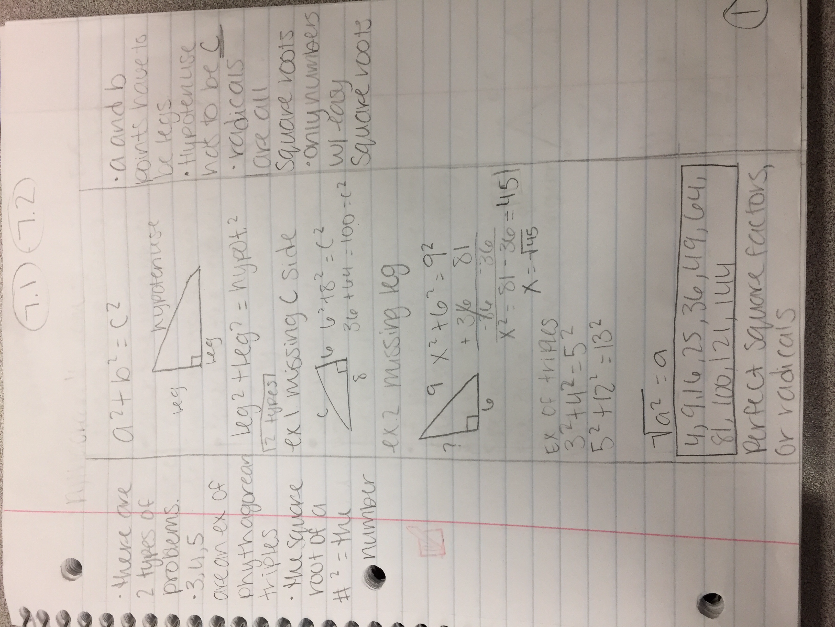 7.1) 7.2)
• there are
2 types of
problems.
• 3,4,5
are an ex of
phythagorean
triples
• the square
root of a
#² = the
number
a² + b² = c²
hypotenuse
leg
leg
leg² + leg² = hypot²
2 types
ex 1 missing C side
c
6
8
6² + 8² = c²
36 + 64 = 100 = c²
ex 2 missing leg
?
9
6
x² + 6² = 9²
+ 36 81
-36 -36
x² = 81 - 36 = 45
x = √45
Ex of triples
3² + 4² = 5²
5² + 12² = 13²
√a² = a
4, 9, 16, 25, 36, 49, 64,
81, 100, 121, 144
Perfect square factors,
or radicals
• a and b
points have to
be legs
• Hypotenuse
has to be C
• radicals
are all
square roots
• only numbers
w/ easy
square roots
1